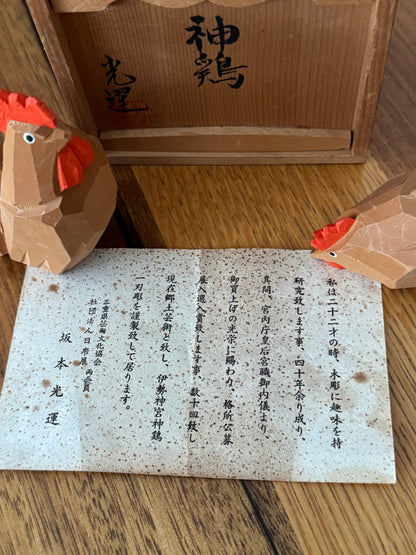 神鷄
光運
私は二十二才の時、木彫に趣味を持
研究致します事、四十年余り成り、
其間、宮内庁皇后宮職御内儀より、
御買上げの光栄に賜わり、格所公募
展入選入賞致します事、数十回致し
現在郷土芸術と致し、伊勢神宮神鶏
一刃彫を謹製致して居ります。
三重県芸術文化協会
社団法人 日府展 両会員
坂本光運